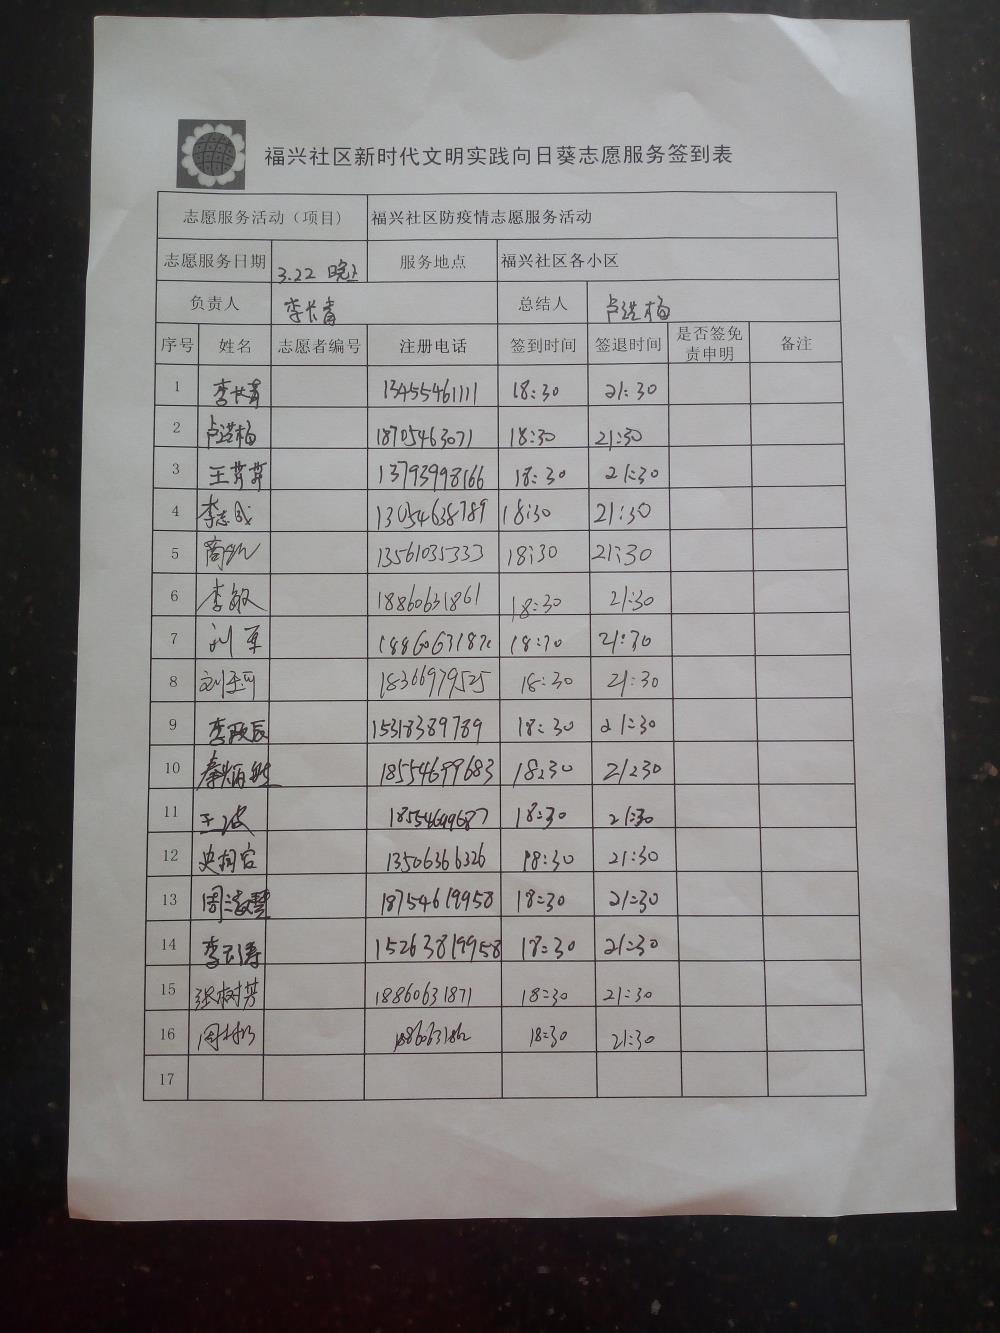 福兴社区新时代文明实践向日葵志愿服务签到表
志愿服务活动（项目） 福兴社区防疫情志愿服务活动
志愿服务日期 3.22 晚上 服务地点 福兴社区各小区
负责人 李长青 总结人 卢洪梅
序号 姓名 志愿者编号 注册电话 签到时间 签退时间 是否签免责申明 备注
1 李长青 13455461111 18:30 21:30
2 卢洪梅 18705463071 18:30 21:30
3 王芹芹 13793998166 18:30 21:30
4 李志成 13054638789 18:30 21:30
5 13561035333 18:30 21:30
6 李敏 18860631861 18:30 21:30
7 刘军 18:30 21:30
8 刘玉川 18366979525 18:30 21:30
9 李政辰 15318389789 18:30 21:30
10 秦炳 18554699683 18:30 21:30
11 王波 18554699687 18:30 21:30
12 史 13506366326 18:30 21:30
13 周淑慧 18754619958 18:30 21:30
14 李玉涛 15263819958 18:30 21:30
15 张树芳 18860631871 18:30 21:30
16 周 18:30 21:30
17